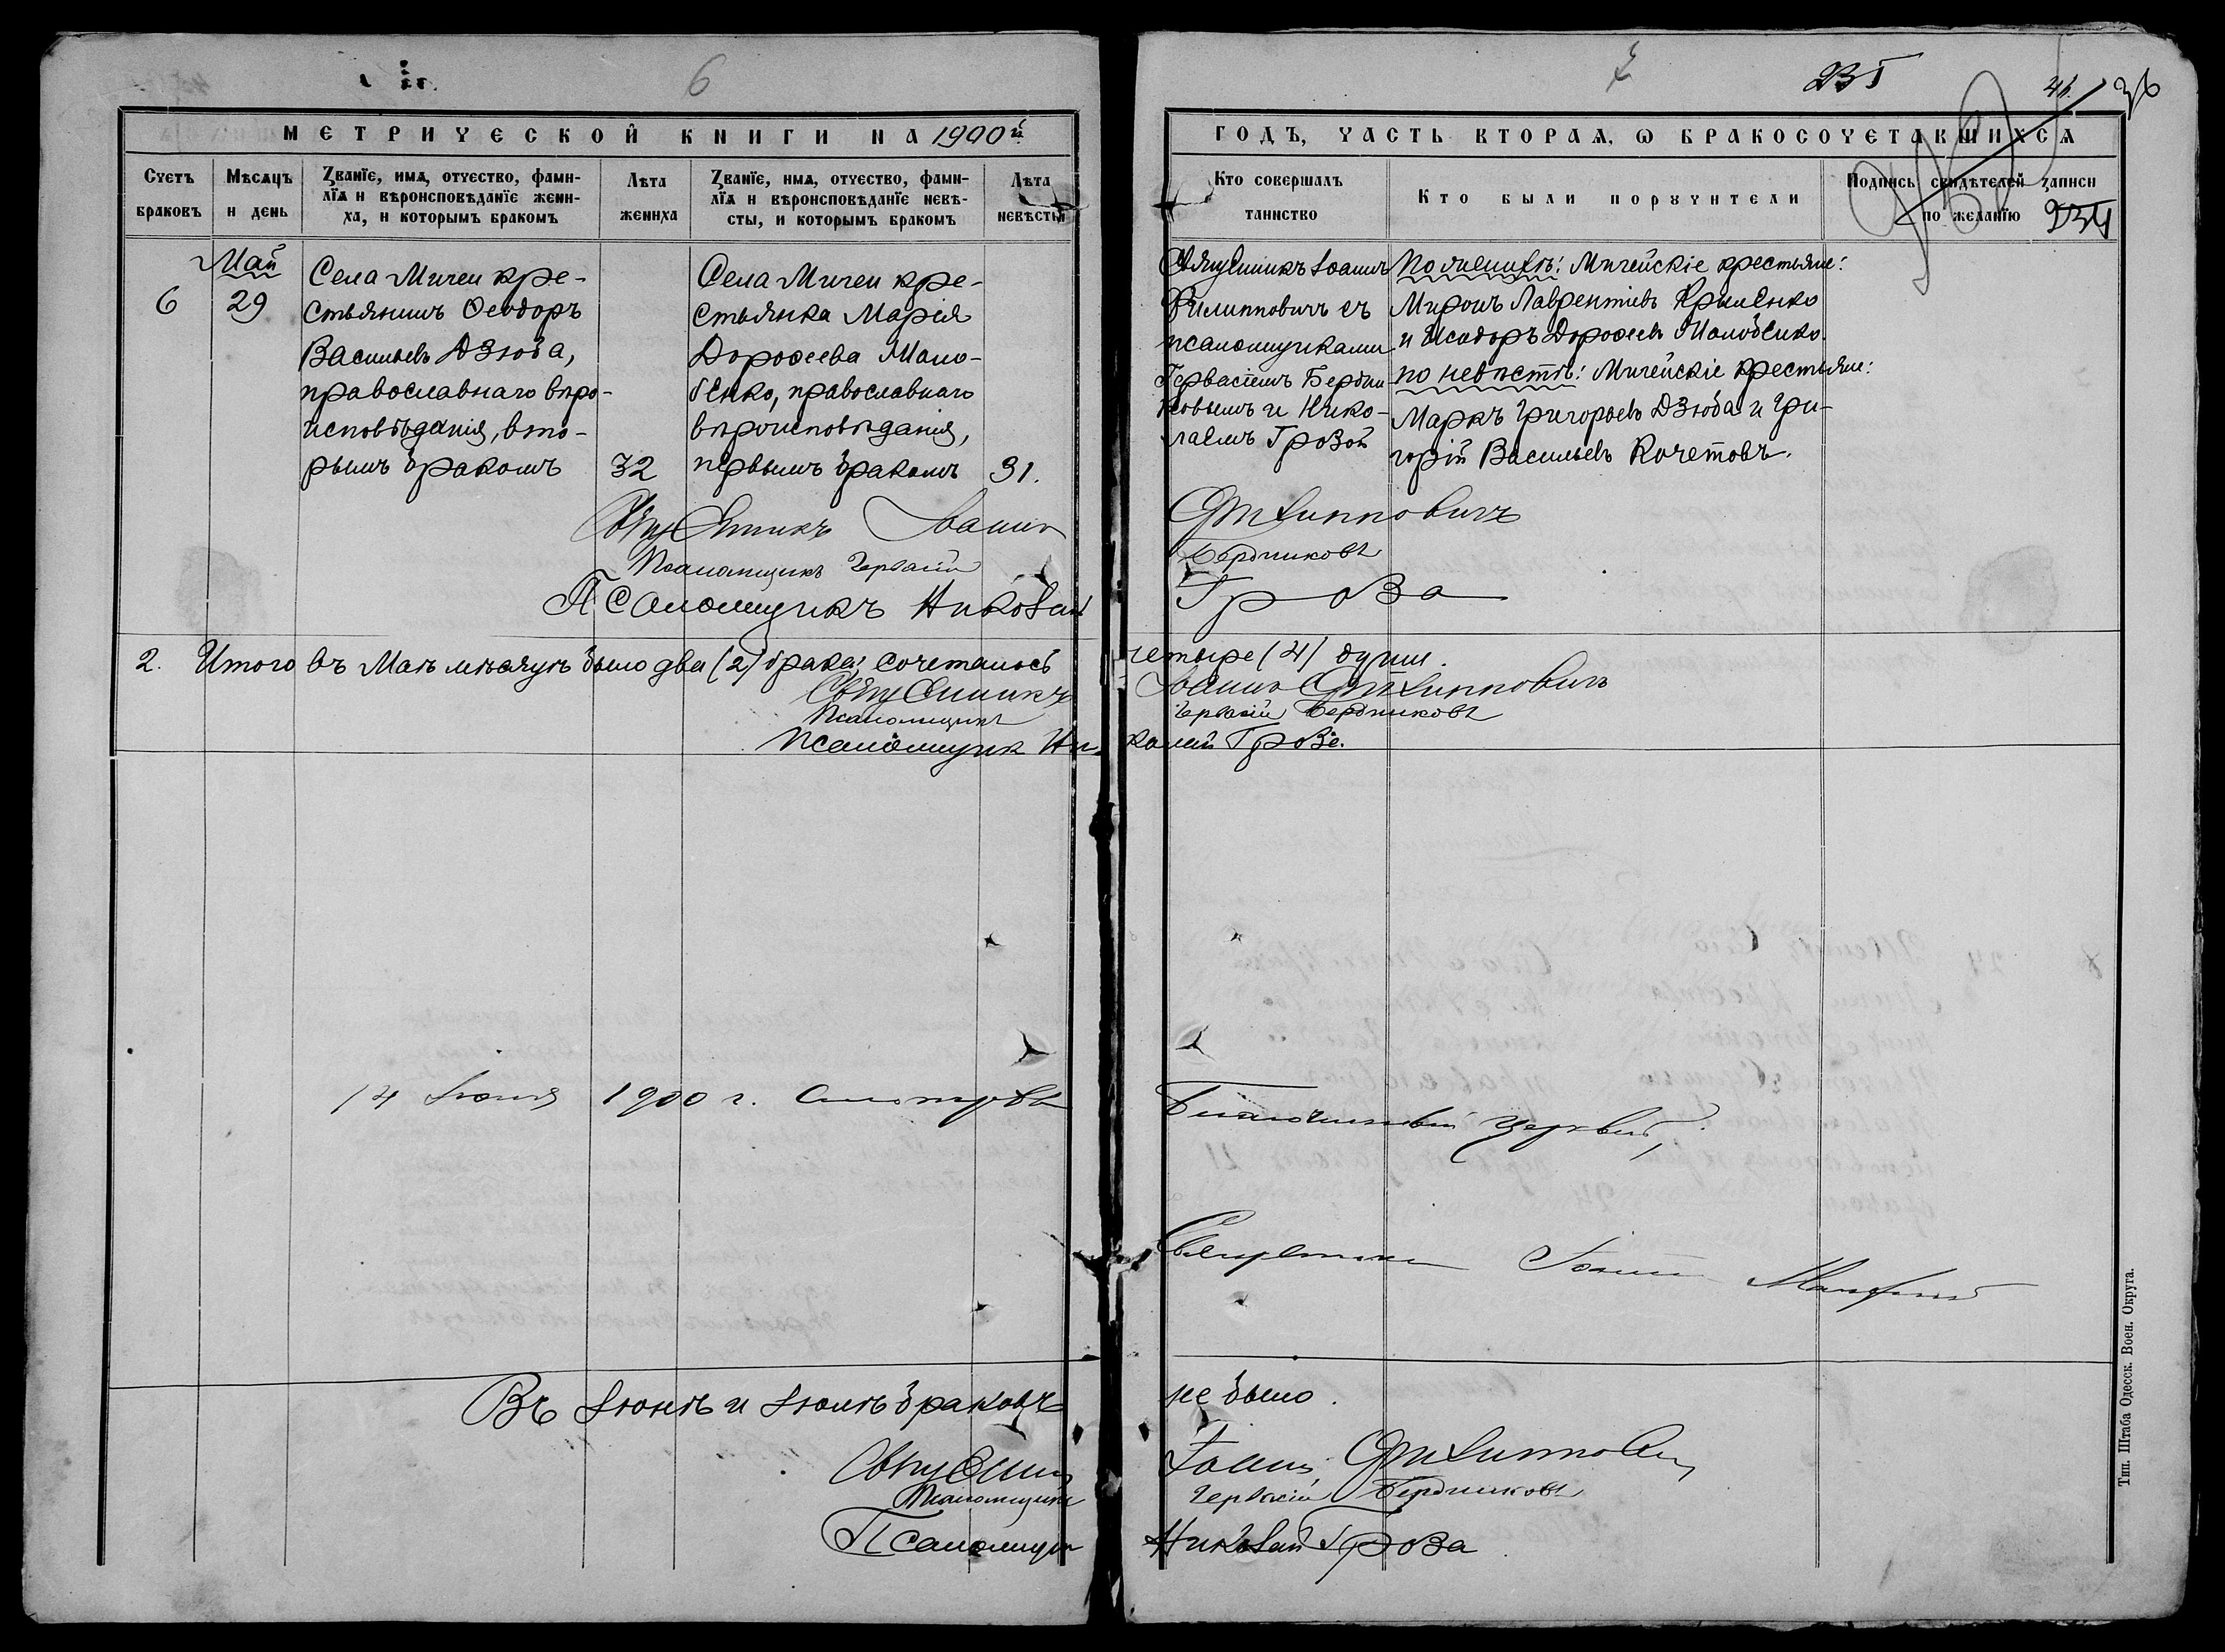 6
7
235
46.
36
МЕТРИЧЕСКОЙ КНИГИ НА 1900й
ГОДЪ, ЧАСТЬ ВТОРАѦ, Ѡ БРАКОСОЧЕТАВШИХСѦ
Счетъ браковъ
Мѣсѧцъ и день
Званїе, имѧ, отчество, фами-
лїѧ и вѣроисповѣданїе жени-
ха, и которымъ бракомъ
Лѣта жениха
Званїе, имѧ, отчество, фами-
лїѧ и вѣроисповѣданїе невѣ-
сты, и которымъ бракомъ
Лѣта невѣсты
Кто совершалъ таинство
Кто были порꙋчители
Подпись свидѣтелей записи по желанїю
Май
6
29
Села Мигеи кре-
стьянинъ Ѳеодоръ
Васильевъ Дзюба,
православнаго вѣро-
исповѣданія, вто-
рымъ бракомъ
32
Села Мигеи кре-
стьянка Марія
Дороѳеева Моло-
бенко, православнаго
вѣроисповѣданія,
первымъ бракомъ
31.
Священникъ Іоаннъ
Филипповичъ съ
псаломщиками
Гервасіемъ Бердни-
ковымъ и Нико-
лаемъ Грозой
По женихѣ: Мигейскіе крестьяне:
Миронъ Лаврентіевъ Крыленко
и Исидоръ Дороѳеевъ Молобенко.
по невѣстѣ: Мигейскіе крестьяне:
Маркъ Григорьевъ Дзюба и Гри-
горій Васильевъ Кочетовъ.
Священникъ Іоаннъ Филипповичъ
Псаломщикъ Гервасій Бердниковъ
Псаломщикъ Николай Гроза
2. Итого въ Маѣ мѣсяцѣ было два (2) брака; сочеталось четыре (4) души.
Священникъ Іоаннъ Филипповичъ
Псаломщикъ Гервасій Бердниковъ
Псаломщик Николай Гроза.
14 Іюня 1900 г. Смотрѣлъ Благочинный церквей,
Священникъ Іоаннъ
Въ Іюнѣ и Іюлѣ браковъ не было.
Священникъ Іоаннъ Филиппович
Псаломщикъ Гервасій Бердниковъ
Псаломщик Николай Гроза
Тип. Штаба Одесск. Воен. Округа.